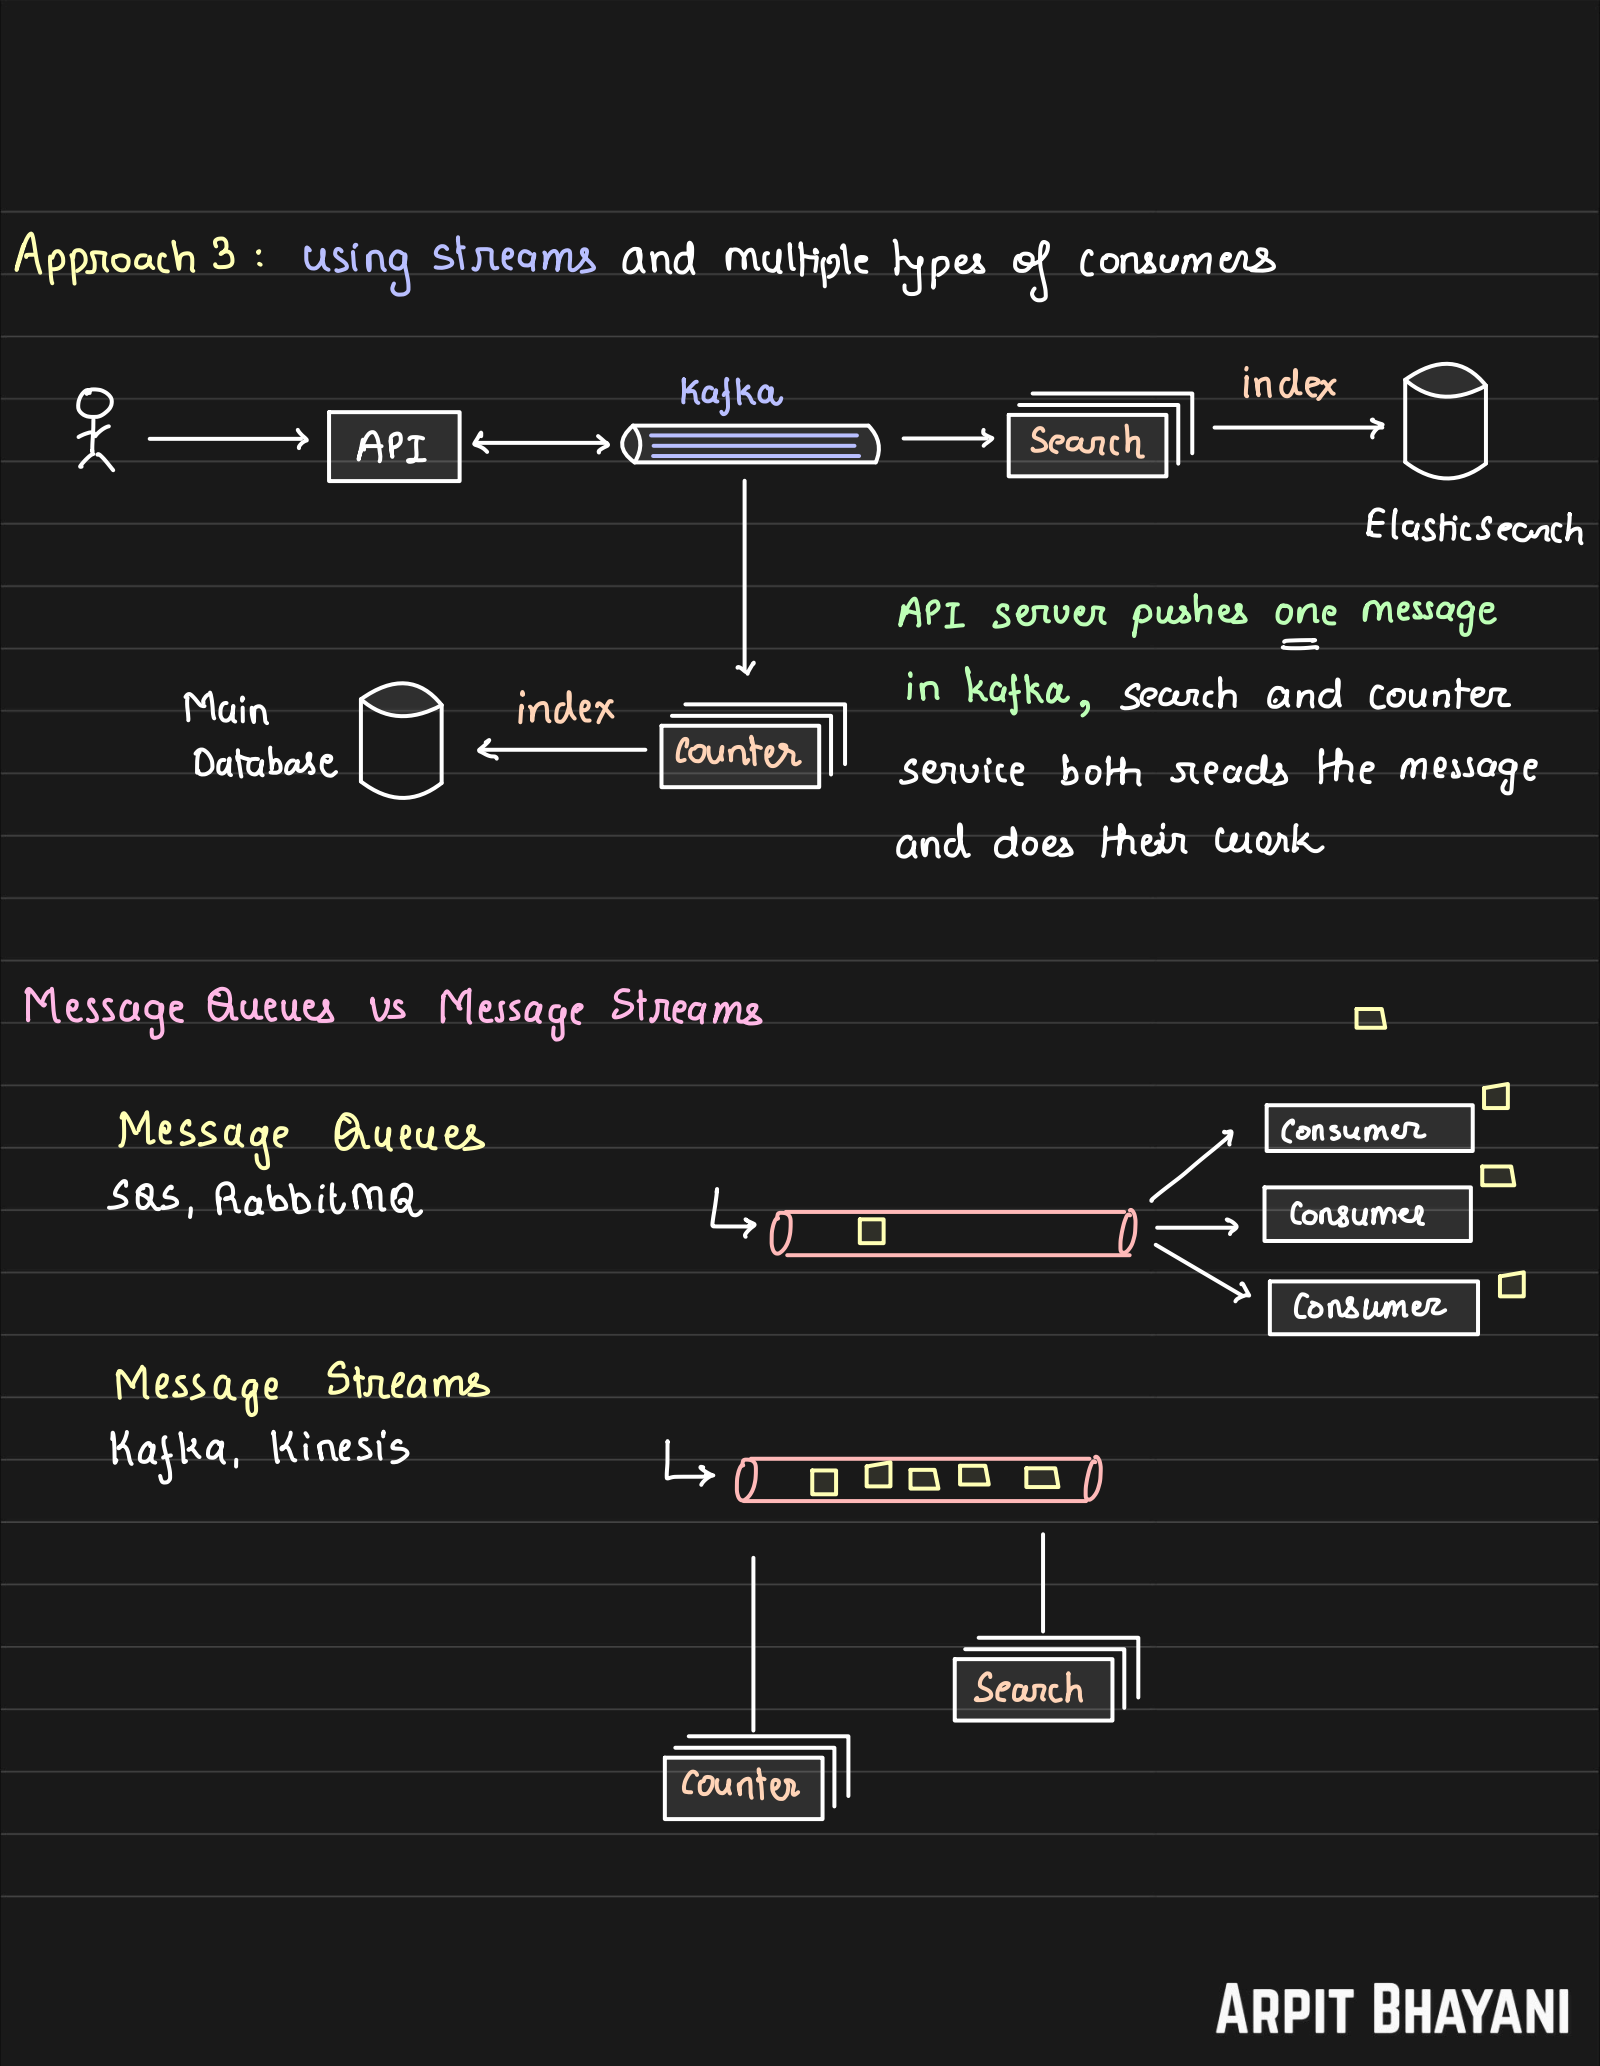 Approach 3: using streams and multiple types of consumers
Kafka
index
API
Search
Elasticsearch
API server pushes one message
in kafka, search and counter
service both reads the message
and does their work
Main
Database
index
Counter
Message Queues vs Message Streams
Message Queues
SQS, RabbitMQ
Consumer
Consumer
Consumer
Message Streams
Kafka, Kinesis
Search
Counter
ARPIT BHAYANI